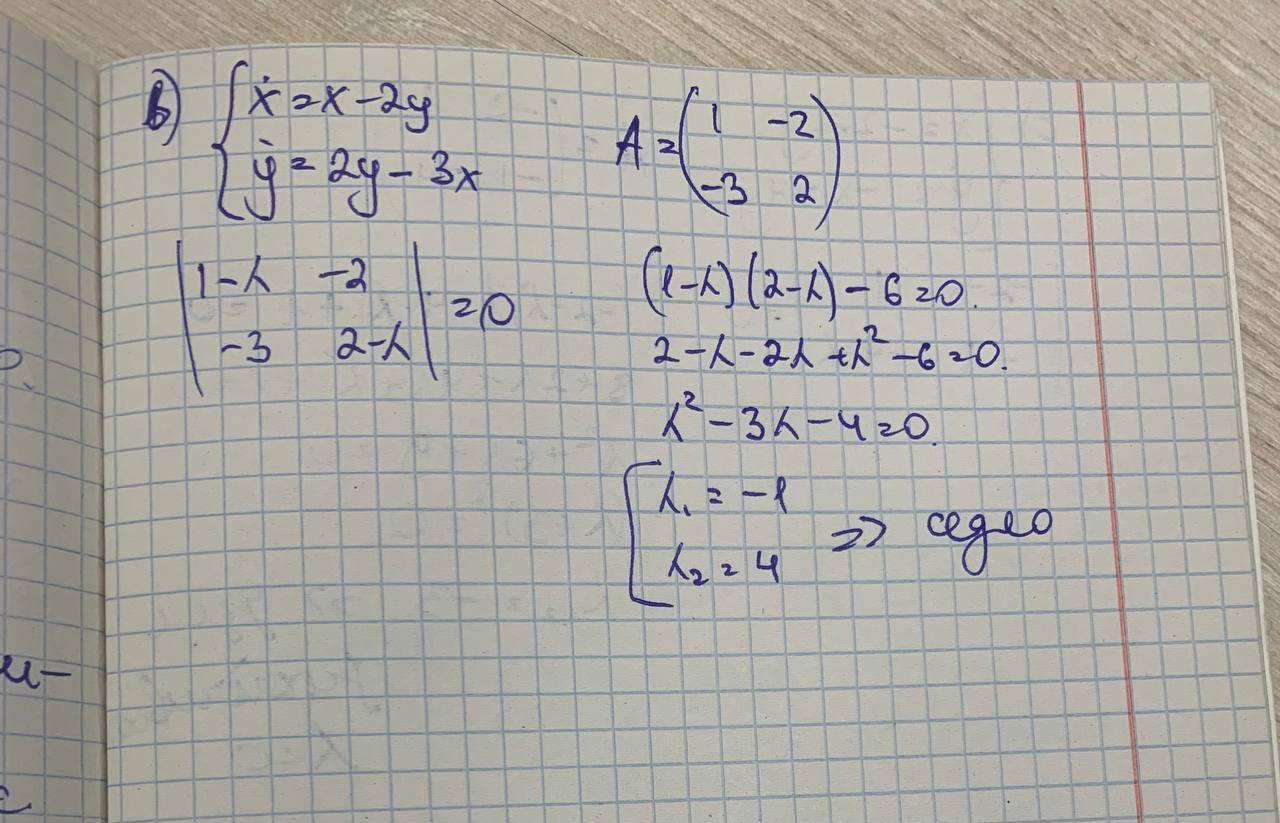 в) { ẋ = x - 2y
ẏ = 2y - 3x
A = ( 1 -2
-3 2 )
| 1-λ -2
-3 2-λ | = 0
(1-λ)(2-λ) - 6 = 0.
2 - λ - 2λ + λ² - 6 = 0.
λ² - 3λ - 4 = 0.
[ λ₁ = -1
λ₂ = 4 => седло
и-